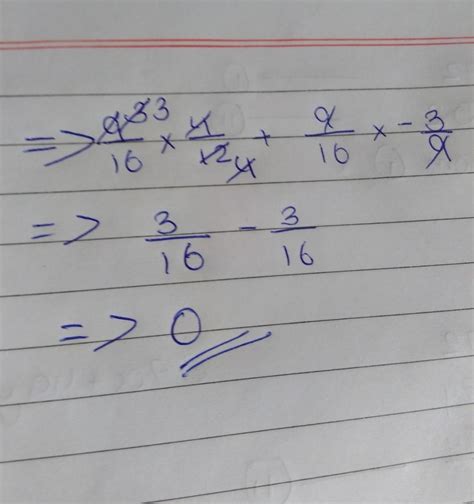 => 9 3 3/16 × 4/12 4 + 9/16 × -3/9
=> 3/16 - 3/16
=> 0